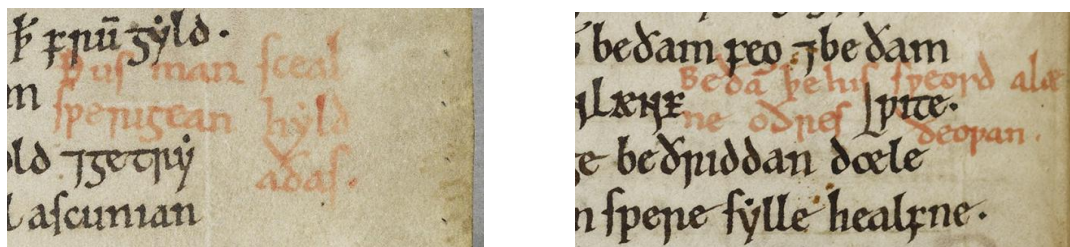 ꝥ frū gẏld.
Þus man sceal
m
sƿerigean hẏld
old ⁊getrẏ
aðas.
l ascunian
beðam feo ⁊be ðam
Be ðā þe his sƿeord alæ
ne oðres
ðeoƿan.
ge beðriddan dæle
n spere fẏlle healfne.